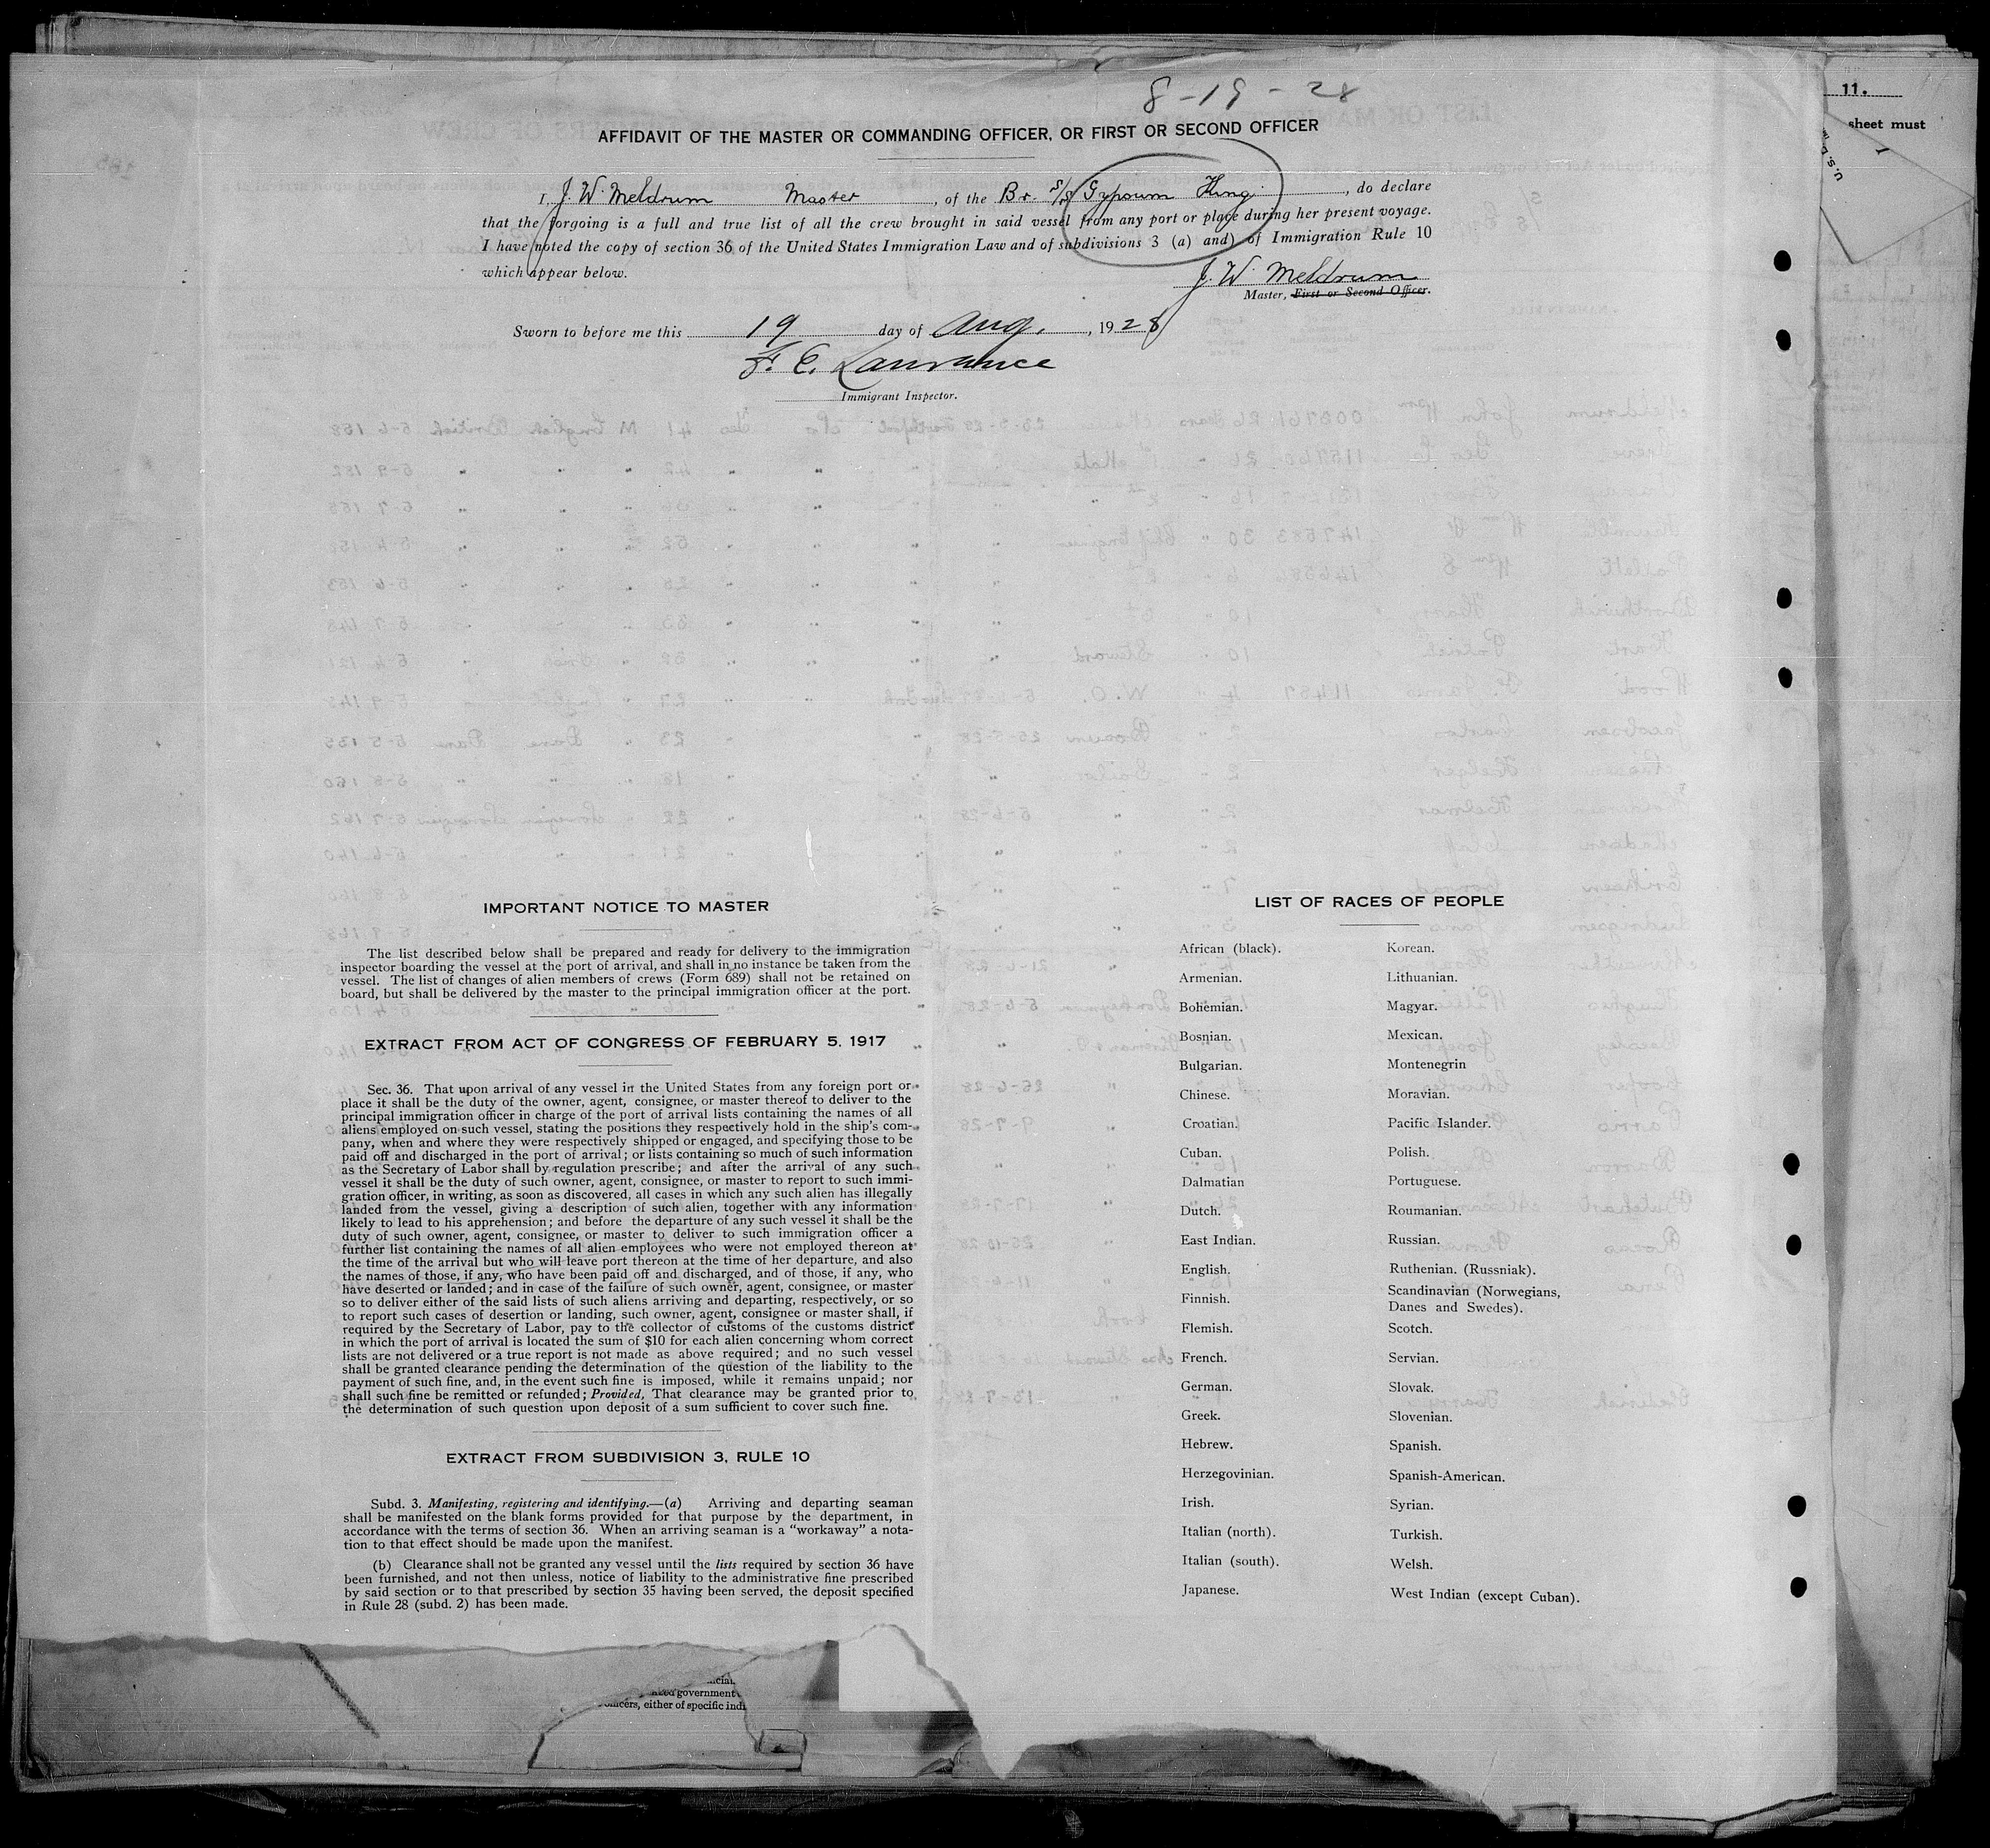 8-19-28
11.
sheet must
AFFIDAVIT OF THE MASTER OR COMMANDING OFFICER, OR FIRST OR SECOND OFFICER
I, J. W. Meldrum Master, of the Br. S/S Gypsum King, do declare
that the forgoing is a full and true list of all the crew brought in said vessel from any port or place during her present voyage.
I have noted the copy of section 36 of the United States Immigration Law and of subdivisions 3 (a) and) of Immigration Rule 10
which appear below.
J. W. Meldrum
Master, First or Second Officer.
Sworn to before me this 19 day of Aug., 1928
F. C. Lawrance
Immigrant Inspector.
IMPORTANT NOTICE TO MASTER
The list described below shall be prepared and ready for delivery to the immigration
inspector boarding the vessel at the port of arrival, and shall in no instance be taken from the
vessel. The list of changes of alien members of crews (Form 689) shall not be retained on
board, but shall be delivered by the master to the principal immigration officer at the port.
EXTRACT FROM ACT OF CONGRESS OF FEBRUARY 5, 1917
Sec. 36. That upon arrival of any vessel in the United States from any foreign port or
place it shall be the duty of the owner, agent, consignee, or master thereof to deliver to the
principal immigration officer in charge of the port of arrival lists containing the names of all
aliens employed on such vessel, stating the positions they respectively hold in the ship's com-
pany, when and where they were respectively shipped or engaged, and specifying those to be
paid off and discharged in the port of arrival; or lists containing so much of such information
as the Secretary of Labor shall by regulation prescribe; and after the arrival of any such
vessel it shall be the duty of such owner, agent, consignee, or master to report to such immi-
gration officer, in writing, as soon as discovered, all cases in which any such alien has illegally
landed from the vessel, giving a description of such alien, together with any information
likely to lead to his apprehension; and before the departure of any such vessel it shall be the
duty of such owner, agent, consignee, or master to deliver to such immigration officer a
further list containing the names of all alien employees who were not employed thereon at
the time of the arrival but who will leave port thereon at the time of her departure, and also
the names of those, if any, who have been paid off and discharged, and of those, if any, who
have deserted or landed; and in case of the failure of such owner, agent, consignee, or master
so to deliver either of the said lists of such aliens arriving and departing, respectively, or so
to report such cases of desertion or landing, such owner, agent, consignee or master shall, if
required by the Secretary of Labor, pay to the collector of customs of the customs district
in which the port of arrival is located the sum of $10 for each alien concerning whom correct
lists are not delivered or a true report is not made as above required; and no such vessel
shall be granted clearance pending the determination of the question of the liability to the
payment of such fine, and, in the event such fine is imposed, while it remains unpaid; nor
shall such fine be remitted or refunded; Provided, That clearance may be granted prior to
the determination of such question upon deposit of a sum sufficient to cover such fine.
EXTRACT FROM SUBDIVISION 3, RULE 10
Subd. 3. Manifesting, registering and identifying.—(a) Arriving and departing seaman
shall be manifested on the blank forms provided for that purpose by the department, in
accordance with the terms of section 36. When an arriving seaman is a "workaway" a nota-
tion to that effect should be made upon the manifest.
(b) Clearance shall not be granted any vessel until the lists required by section 36 have
been furnished, and not then unless, notice of liability to the administrative fine prescribed
by said section or to that prescribed by section 35 having been served, the deposit specified
in Rule 28 (subd. 2) has been made.
LIST OF RACES OF PEOPLE
African (black).
Armenian.
Bohemian.
Bosnian.
Bulgarian.
Chinese.
Croatian.
Cuban.
Dalmatian
Dutch.
East Indian.
English.
Finnish.
Flemish.
French.
German.
Greek.
Hebrew.
Herzegovinian.
Irish.
Italian (north).
Italian (south).
Japanese.
Korean.
Lithuanian.
Magyar.
Mexican.
Montenegrin
Moravian.
Pacific Islander.
Polish.
Portuguese.
Roumanian.
Russian.
Ruthenian. (Russniak).
Scandinavian (Norwegians,
Danes and Swedes).
Scotch.
Servian.
Slovak.
Slovenian.
Spanish.
Spanish-American.
Syrian.
Turkish.
Welsh.
West Indian (except Cuban).
government
either of specific